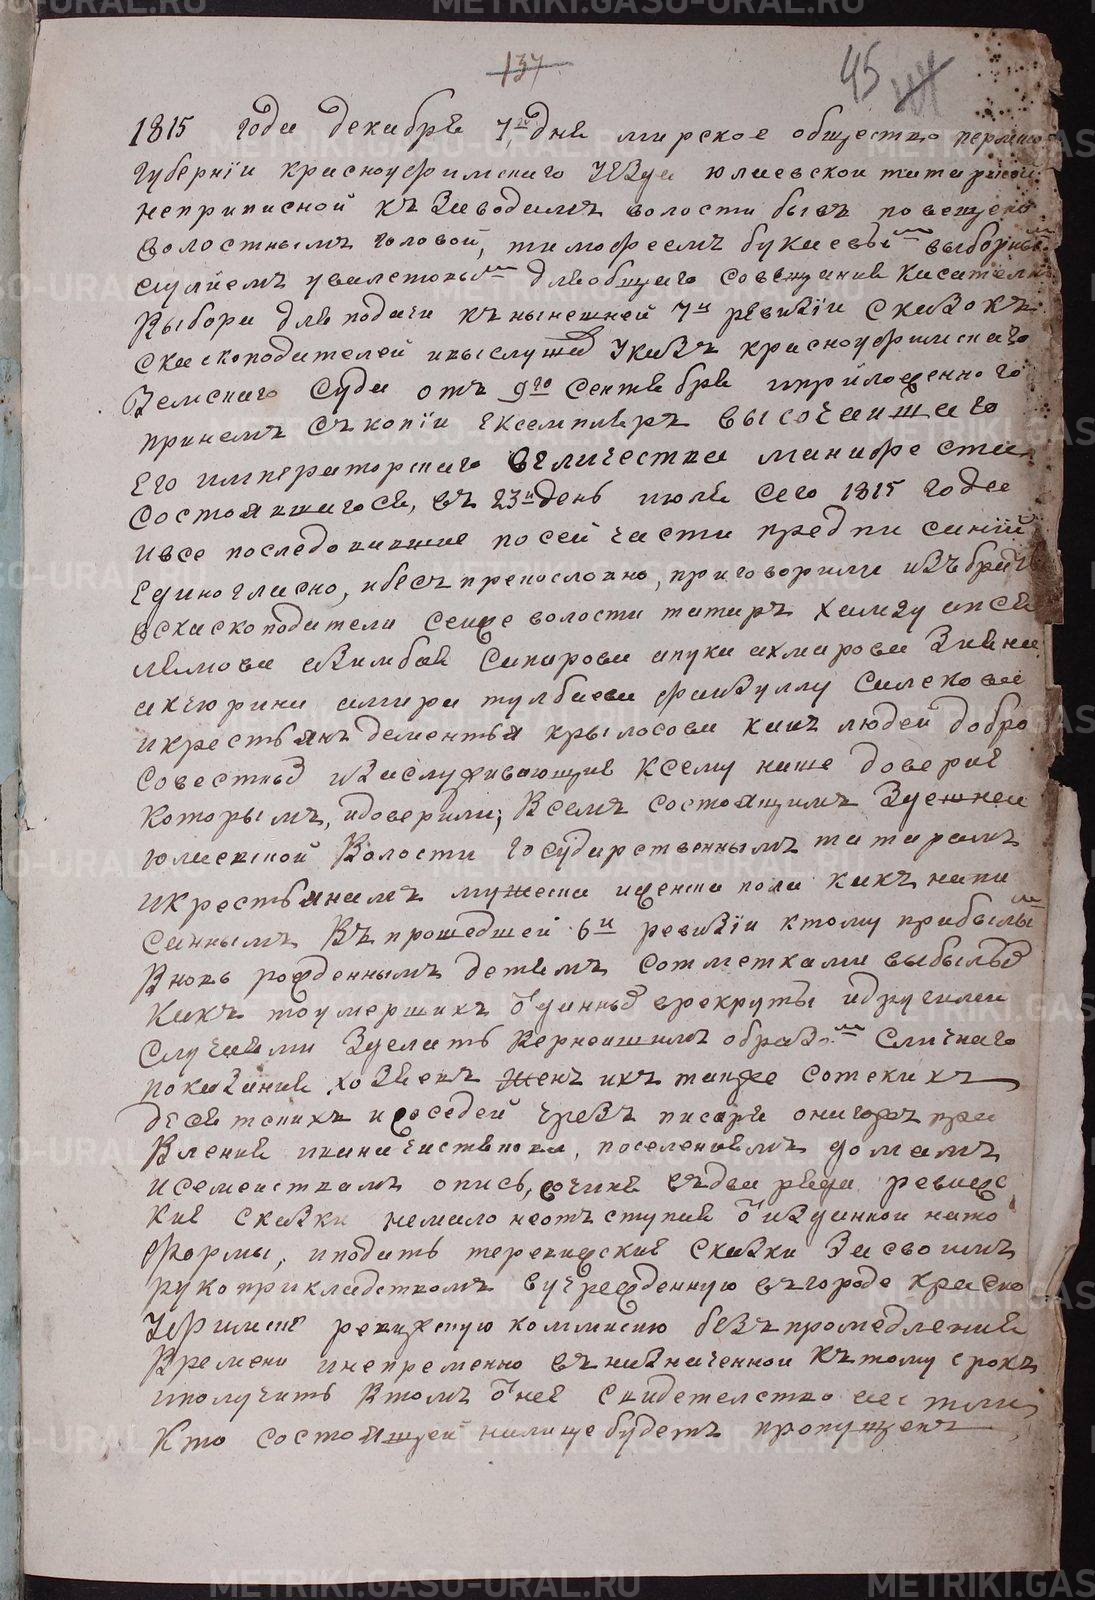 137
45 44
1815 года декабря 7го дня мирское общество пермской
губернии красноуфимскаго уезда юлаевской татарской
неприписной къ заводамъ волости бывъ повещено
волостнымъ головой, тимофеемъ букаевымъ выборнымъ
дляобщаго совещания касателно
выбора для подачи къ нынешней 7й ревизіи сказокъ
скаскоподателей ивыслушавъ указъ красноуфимскаго
Земскаго суда отъ 9го сентября иприложеннаго
принемъ съ копіи екземпляръ высочаишаго
Его императорскаго величества манифеста
состоявшагося, въ 23й день июля сего 1815 года
ивсе последовавшие посей части предписаніи
Единогласно, ибесъ прекословно, приговорили избрать
вскаскоподатели сеиже волости татаръ хамзу апсе
лямова азимбая сапарова апука ахмарова зиена
акчюрина амира тулбаева файзуллу салекова
икрестьянъ дементья крылосова какъ людей добро
совестныхъ изаслуживающие ксему наше доверие
которымъ, идоверили; всемъ состоящимъ зделнеи
юлаевской волости государственнымъ татарамъ
икрестьянамъ мужеска иженска пола какъ напи
саннымъ въ прошедшей 6й ревизіи ктому прибылымъ
вновь рожденнымъ детямъ сотметками выбылыхъ
какъ тоумершихъ отданныхъ врекруты идругими
случаями зделать вернеишимъ образомъ сличнаго
показания хозяевъ женъ ихъ также сотскихъ
десятскихъ исоседей чрезъ писаря
вление поселениямъ домамъ
исемеиствамъ опись, сочиня въдва ряда ревизс
кие сказки немало неотъступая отизданнои нато
формы, иподать теревизские сказки засвоимъ
рукоприкладствомъ вучрежденную въгороде красно
уфимске ревизскую коммисию безъпромедления
времени инепременно въназначеннои къ тому срокъ
иполучить втомъ отнея свидетелство аестли
кто состоящей налицебудетъ пропущенъ